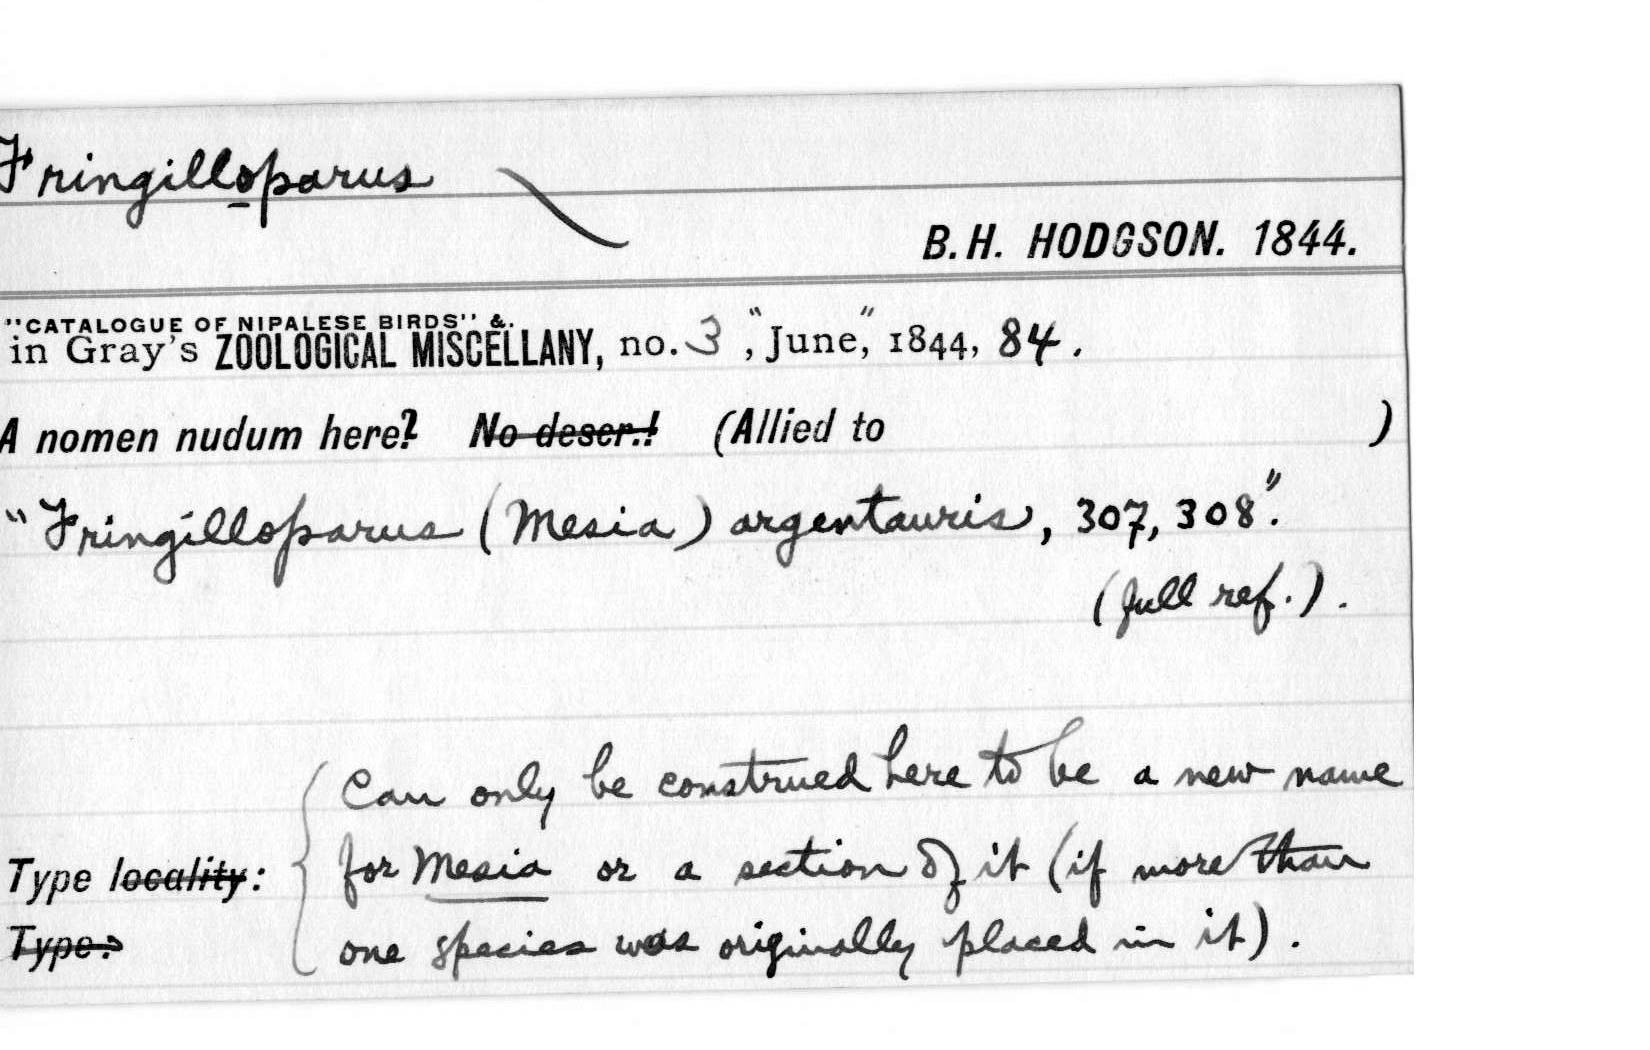 Fringilloparus
B.H. HODGSON. 1844.
"CATALOGUE OF NIPALESE BIRDS" &.
in Gray's ZOOLOGICAL MISCELLANY, no. 3, "June," 1844, 84.
A nomen nudum here? No descr.! (Allied to )
"Fringilloparus (Mesia) argentauris, 307, 308".
(full ref.).
Can only be construed here to be a new name
for Mesia or a section of it (if more than
Type locality:
one species was originally placed in it).
Type: